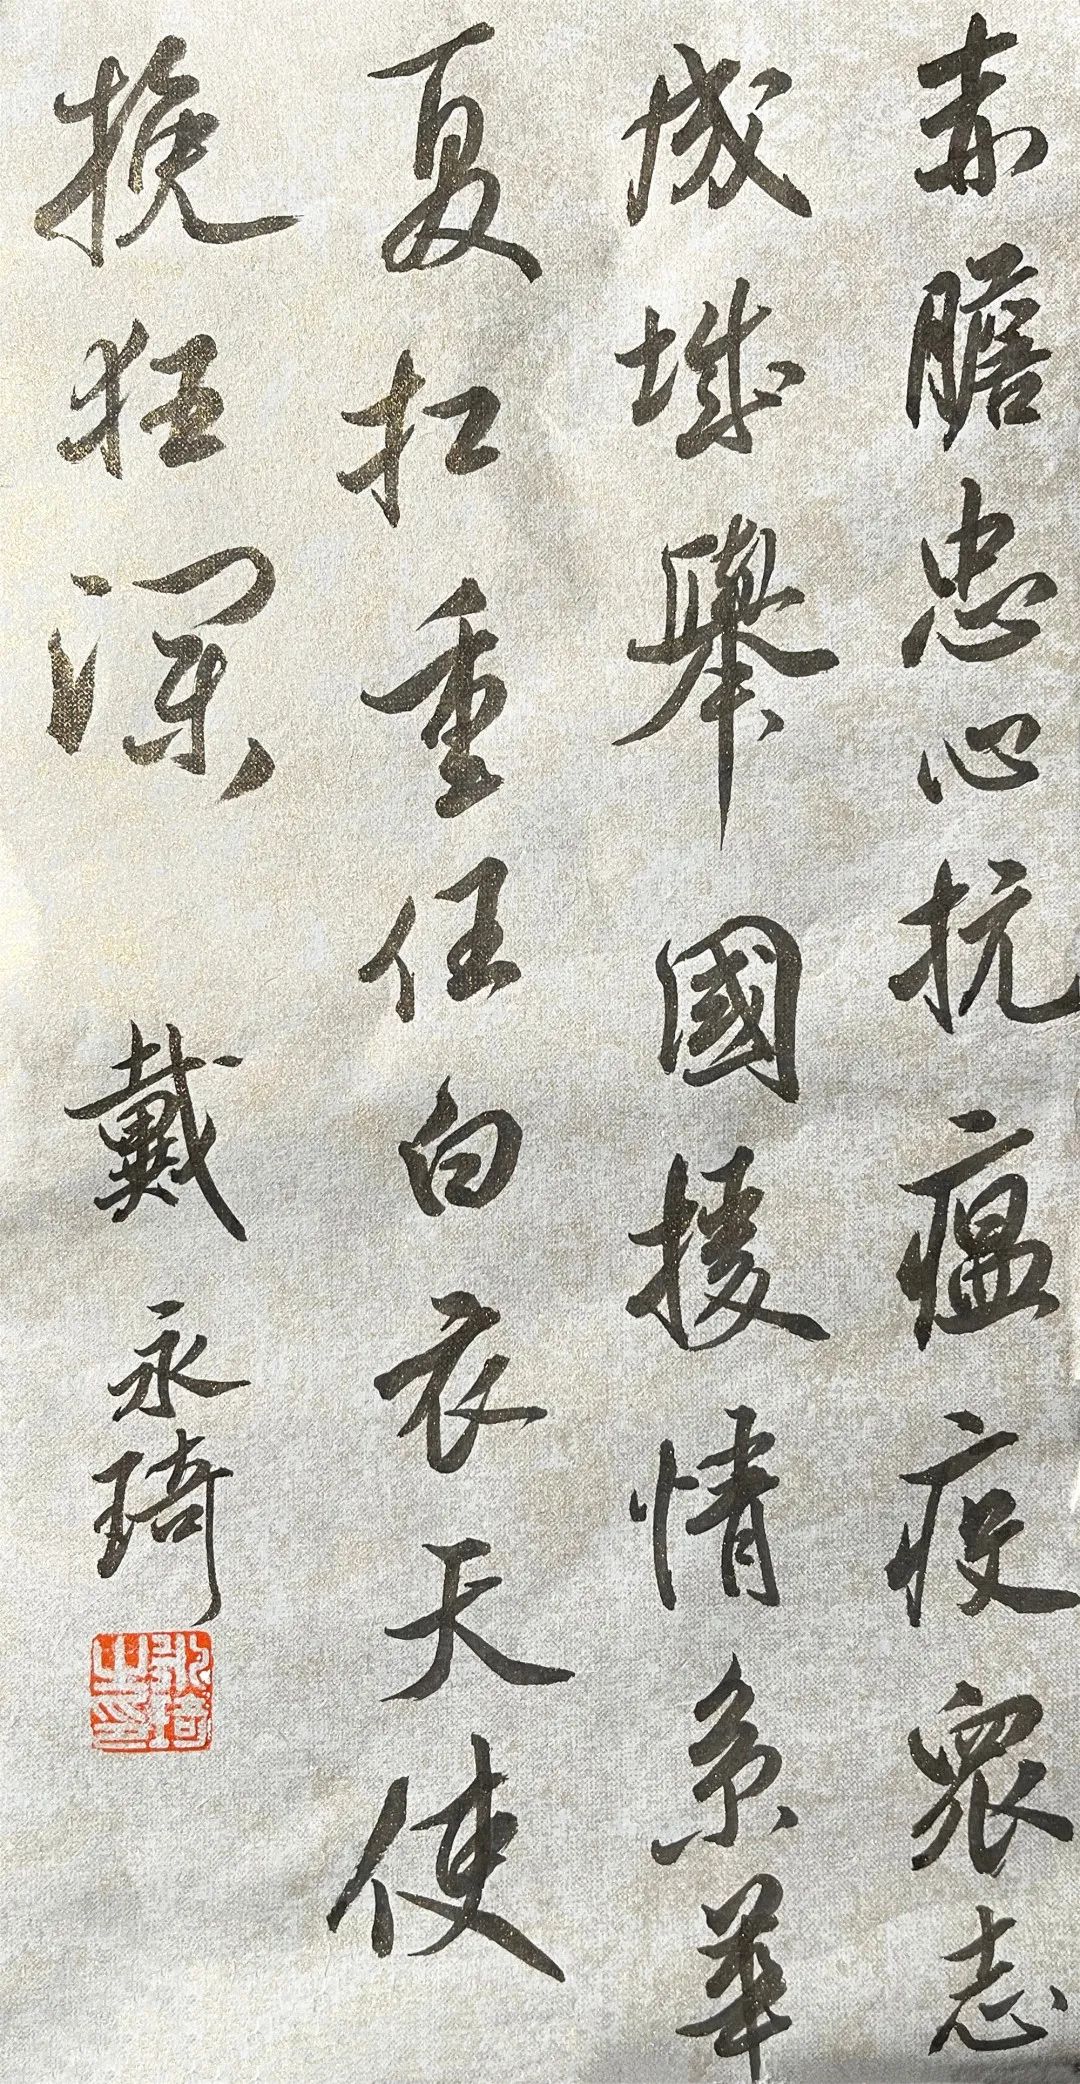 赤膽忠心抗瘟疫衆志
成城舉國援情系華
夏扛重任白衣天使
挽狂瀾
戴永琦
永琦之印